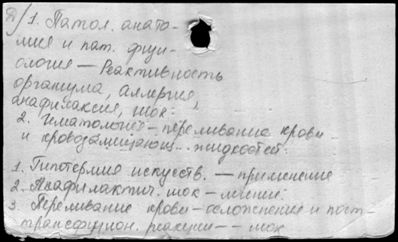 Д/1. Патол. анато-
мия и пат. физи-
ология — Реактивность
организма, аллергия,
анафилаксия, шок.
2. Гематология — переливание крови
и кровозамещающ... жидкостей.
1. Гипотермия искусств. — применение
2. Анафилактич. шок — лечение.
3. Переливание крови — осложнения и пост-
трансфузион. реакции — шок